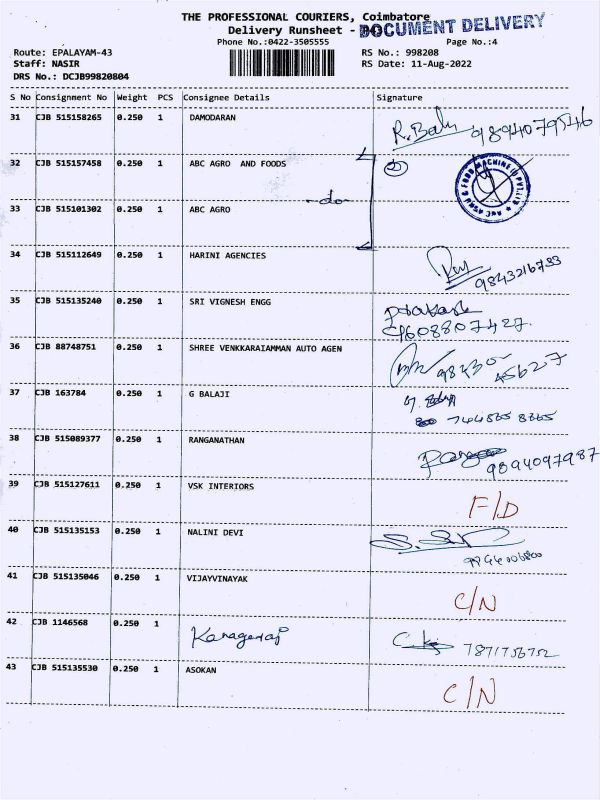 THE PROFESSIONAL COURIERS, Coimbatore
Delivery Runsheet - DOCUMENT DELIVERY
Phone No.:0422-3505555 Page No.:4
Route: EPALAYAM-43 RS No.: 998208
Staff: NASIR RS Date: 11-Aug-2022
DRS No.: DCJB99820804
S No Consignment No Weight PCS Consignee Details Signature
31 CJB 515158265 0.250 1 DAMODARAN R. Balu 9894079546
32 CJB 515157458 0.250 1 ABC AGRO AND FOODS
-do-
33 CJB 515101302 0.250 1 ABC AGRO
34 CJB 515112649 0.250 1 HARINI AGENCIES 9843216733
35 CJB 515135240 0.250 1 SRI VIGNESH ENGG Prakash
9608807427
36 CJB 88748751 0.250 1 SHREE VENKKARAIAMMAN AUTO AGEN 98430 45627
37 CJB 163784 0.250 1 G BALAJI
38 CJB 515089377 0.250 1 RANGANATHAN 9894097987
39 CJB 515127611 0.250 1 VSK INTERIORS F/D
40 CJB 515135153 0.250 1 NALINI DEVI
41 CJB 515135046 0.250 1 VIJAYVINAYAK C/N
42 CJB 1146568 0.250 1 Kanagaraj 7871756752
43 CJB 515135530 0.250 1 ASOKAN C/N